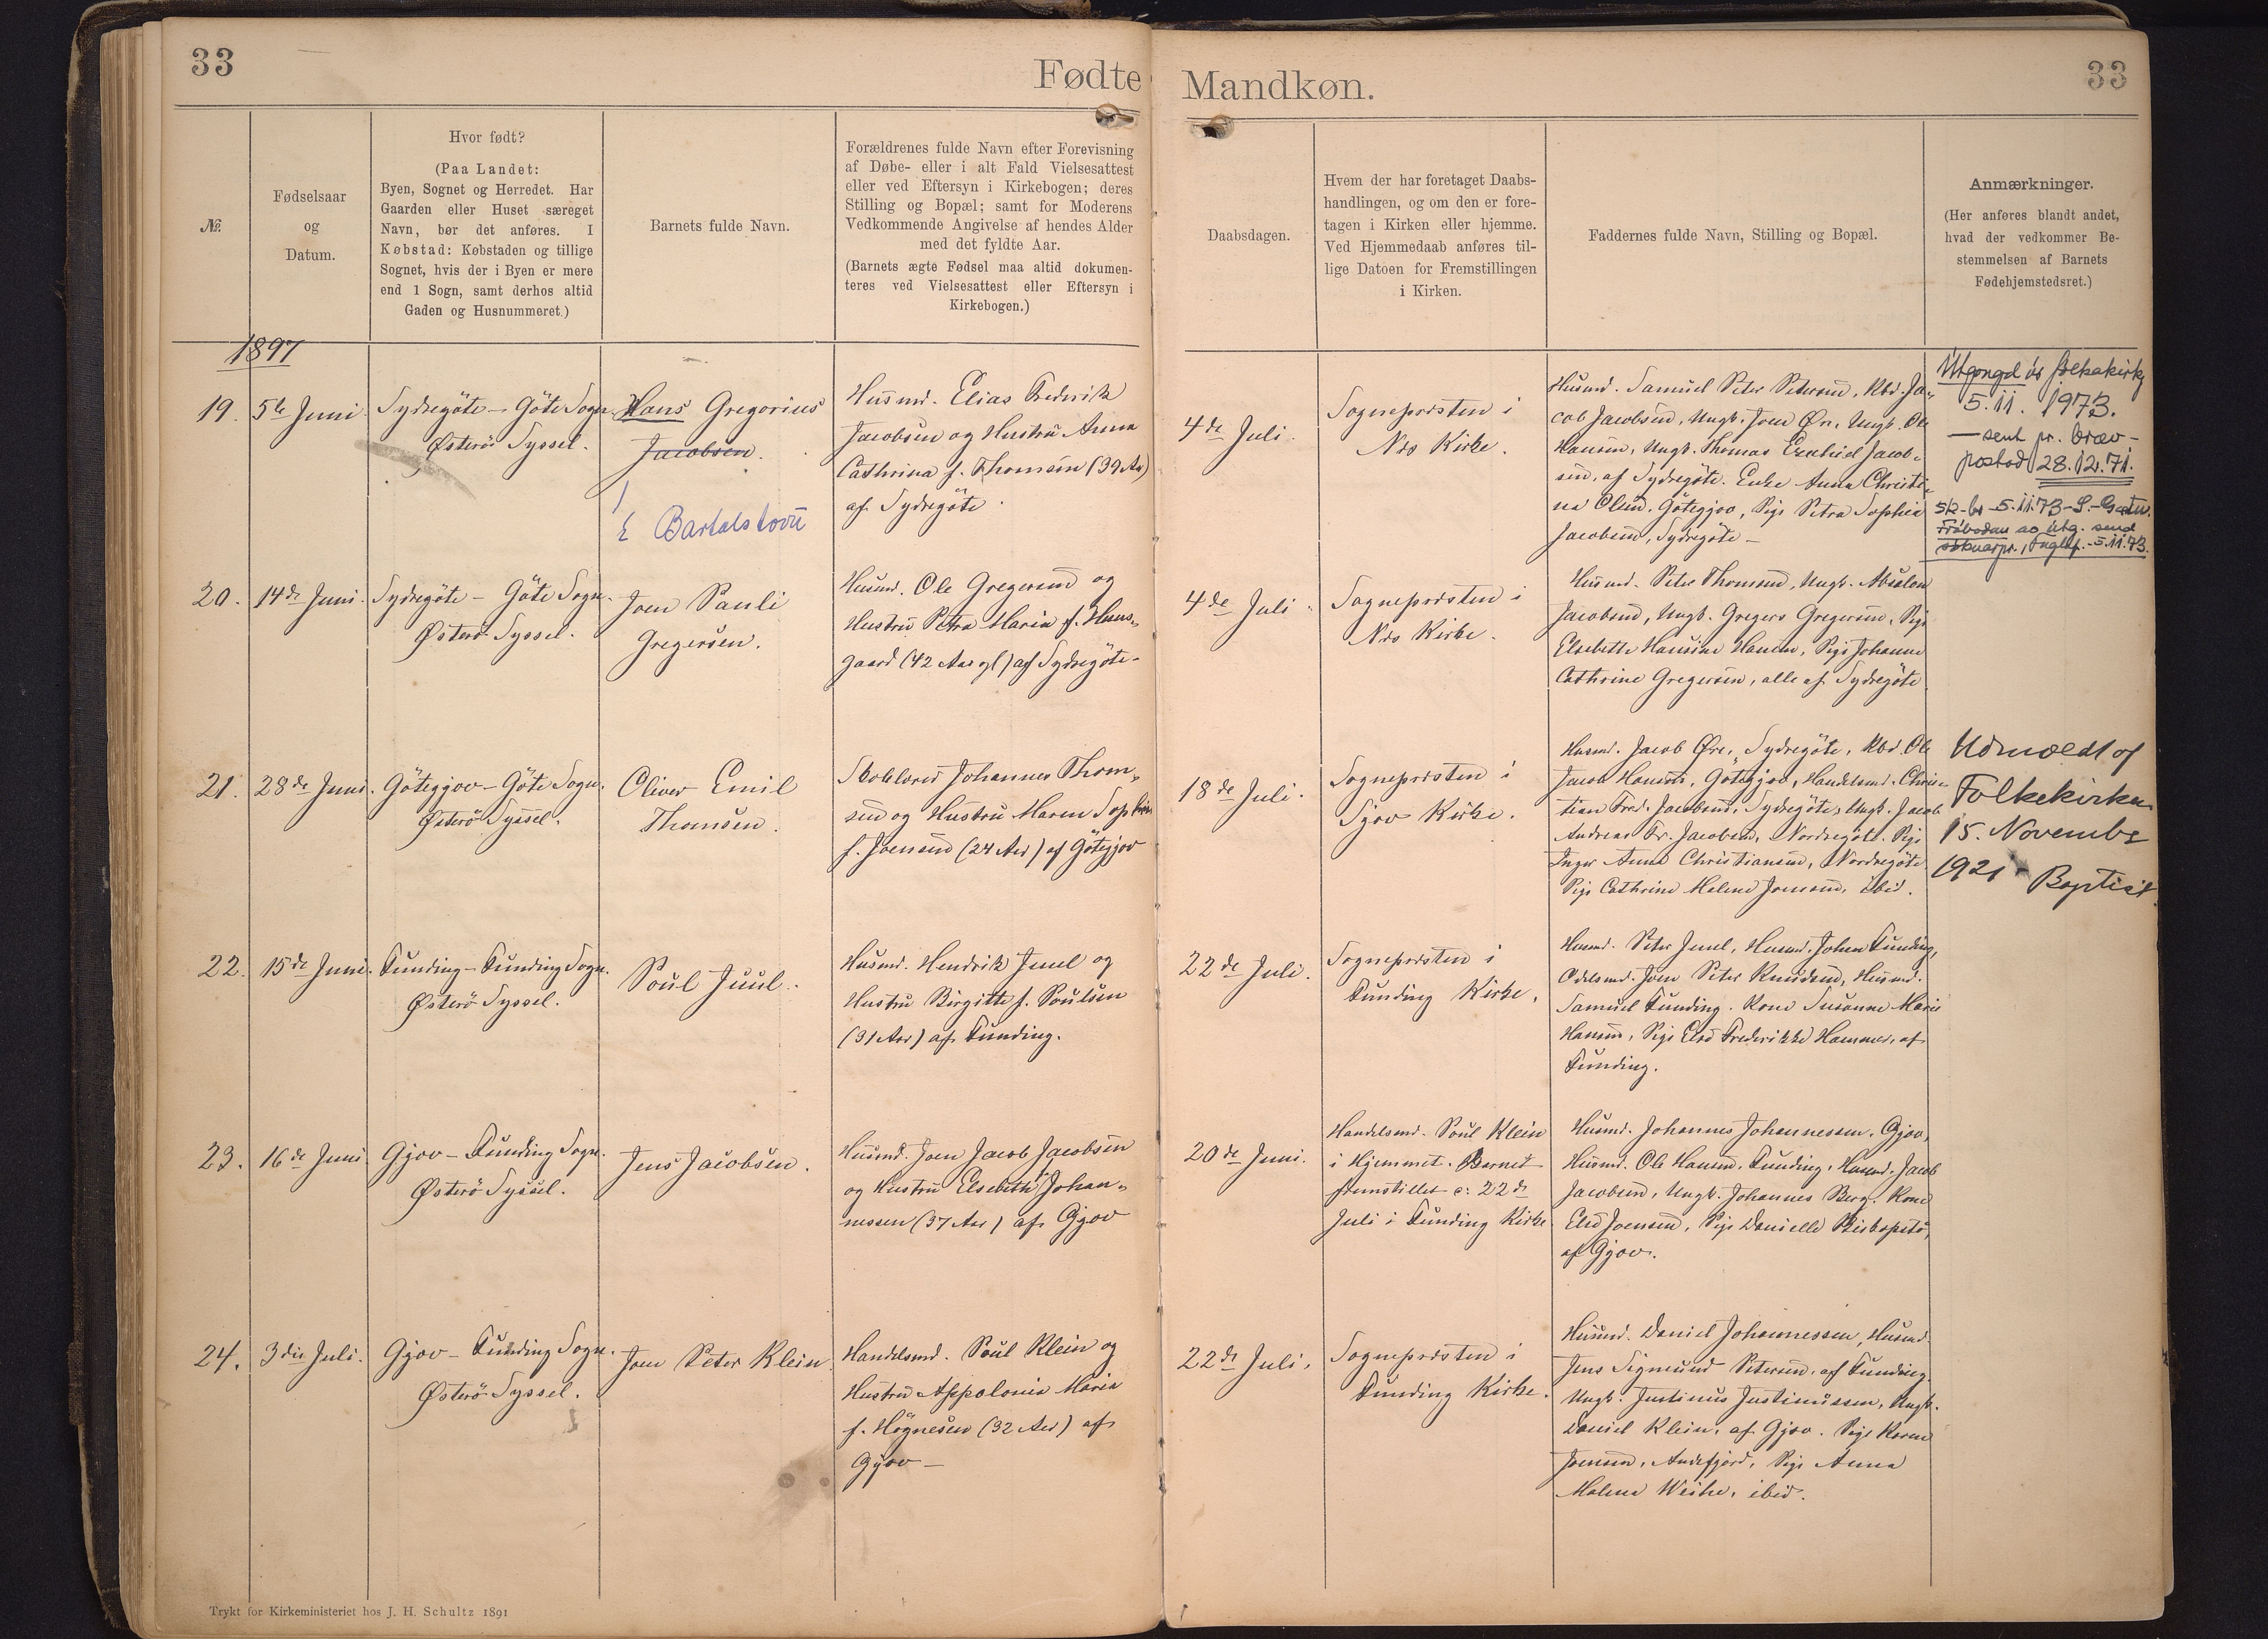 33
Fødte
Mandkøn.
33
№
Fødselsaar
og
Datum.
Hvor født?
(Paa Landet:
Byen, Sognet og Herredet. Har
Gaarden eller Huset særeget
Navn, bør det anføres. I
Købstad: Købstaden og tillige
Sognet, hvis der i Byen er mere
end 1 Sogn, samt derhos altid
Gaden og Husnummeret.)
Barnets fulde Navn.
Forældrenes fulde Navn efter Forevisning
af Døbe- eller i alt Fald Vielsesattest
eller ved Eftersyn i Kirkebogen; deres
Stilling og Bopæl; samt for Moderens
Vedkommende Angivelse af hendes Alder
med det fyldte Aar.
(Barnets ægte Fødsel maa altid dokumen-
teres ved Vielsesattest eller Eftersyn i
Kirkebogen.)
Daabsdagen.
Hvem der har foretaget Daabs-
handlingen, og om den er fore-
tagen i Kirken eller hjemme.
Ved Hjemmedaab anføres til-
lige Datoen for Fremstillingen
i Kirken.
Faddernes fulde Navn, Stilling og Bopæl.
Anmærkninger.
(Her anføres blandt andet,
hvad der vedkommer Be-
stemmelsen af Barnets
Fødehjemstedsret.)
1897
19.
5te Juni
Sydregöte - Göte Sogn
Österö Syssel.
Hans Gregorius
Jacobsen.
á Bartalstovu
Husmd. Elias Frederik
Jacobsen og Hustru Anna
Cathrina f. Thomsen (39 Aar)
af Sydregöte.
4de Juli.
Sognepræsten i
Nes Kirke.
Husmd. Samuel Peter Petersen, Kbd. Ja-
cob Jacobsen, Ungk. Joen Øre, Ungk. Ole
Hansen, Ungk. Thomas Ezechiel Jacob-
sen, af Sydregöte. Enke Anna Christi-
na Olsen, Götegjov, Pige Petra Sophia
Jacobsen, Sydregöte -
Útgongd úr fólkakirkj
5.11.1973.
- sent pr. bræv-
postad 28.12.71.
20.
14de Juni.
Sydregöte - Göte Sogn.
Österö Syssel.
Joen Pauli
Gregersen.
Husmd. Ole Gregersen og
Hustru Petra Maria f. Hans-
gaard (42 Aar gl) af Sydregöte.
4de Juli.
Sognepræsten i
Nes Kirke.
Husmd. Peter Thomsen, Ungk. Absalon
Jacobsen, Ungk. Gregers Gregersen, Pige
Elsebetta Hansine Hansen, Pige Johanne
Cathrine Gregersen, alle af Sydregöte
21.
28de Juni.
Götegjov - Göte Sogn.
Österö Syssel.
Oliver Emil
Thomsen.
Skolelærer Johannes Thom-
sen og Hustru Maren Sophie
f. Joensen (24 Aar) af Götegjov
18de Juli.
Sognepræsten i
Gjov Kirke.
Husmd. Jacob Øre, Sydregöte, Kbd. Ole
Jacob Hansen, Götegjov, Handelsmd. Chris-
tian Fred. Jacobsen, Sydregöte, Ungk. Jacob
Andreas Fr. Jacobsen, Nordregöte. Pige
Inger Anna Christiansen, Nordregöte
Pige Cathrine Malene Joensen, ibid.
Udmeldt af
Folkekirken
15. Novembr
1921 Baptist.
22.
15de Juni.
Funding - Funding Sogn.
Österö Syssel.
Poul Juul.
Husmd. Hendrik Juul og
Hustru Birgitte f. Poulsen
(31 Aar) af Funding.
22de Juli.
Sognepræsten i
Funding Kirke.
Husmd. Peter Juul, Husmd. Johan Funding,
Odelsmd. Joen Peter Knudsen, Husmd.
Samuel Funding. Kone Susanne Marie
Hansen, Pige Else Frederikke Hammer, af
Funding.
23.
16de Juni
Gjov - Funding Sogn.
Österö Syssel.
Jens Jacobsen.
Husmd. Joen Jacob Jacobsen
og Hustru Elsebeth Johan-
nessen (37 Aar) af Gjov
20de Juni.
Handelsmd. Poul Klein
i Hjemmet. Barnet
fremstillet d: 22de
Juli i Funding Kirke
Husmd. Johannes Johannessen, Gjov,
Husmd. Ole Hansen, Funding, Husmd. Jacob
Jacobsen, Ungk. Johannes Berg. Kone
Else Joensen, Pige Danielle Biskopstö,
af Gjov.
24.
3die Juli.
Gjov - Funding Sogn.
Österö Syssel.
Joen Peter Klein.
Handelsmd. Poul Klein og
Hustru Appolonia Maria
f. Högnesen (32 Aar) af
Gjov -
22de Juli.
Sognepræsten i
Funding Kirke.
Husmd. Daniel Johannessen, Husmd.
Jens Sigmund Petersen, af Funding.
Ungk. Justinus Justinussen, Ungk.
Daniel Klein, af Gjov. Pige Karen
Joensen, Andefjord, Pige Anna
Malena Weihe, ibid.
Trykt for Kirkeministeriet hos J. H. Schultz 1891